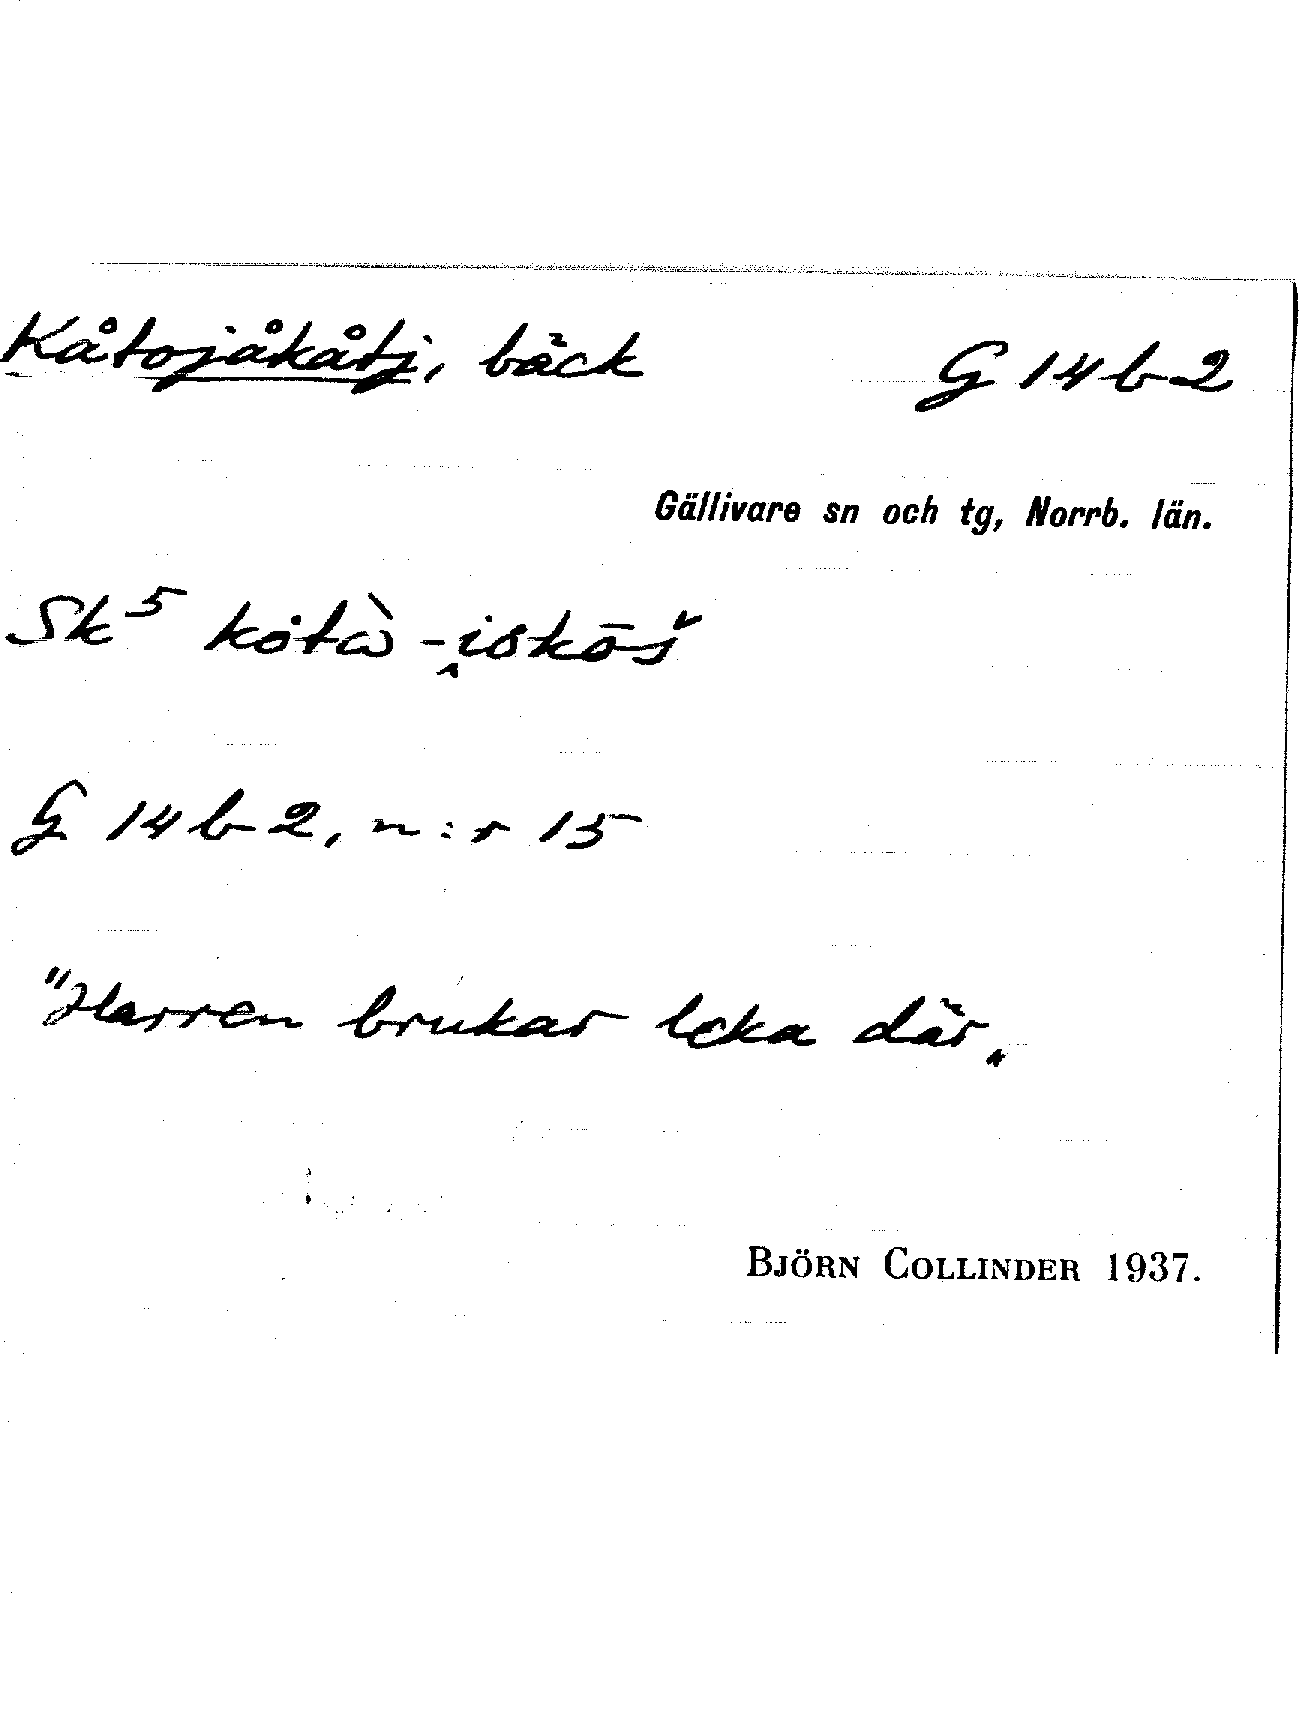 Kåtojåkåtj, bäck G 14 b 2
Gällivare sn och tg, Norrb. län.
Sk⁵
G 14 b 2, n:r 15
"Harren brukar leka där.
BJÖRN COLLINDER 1937.